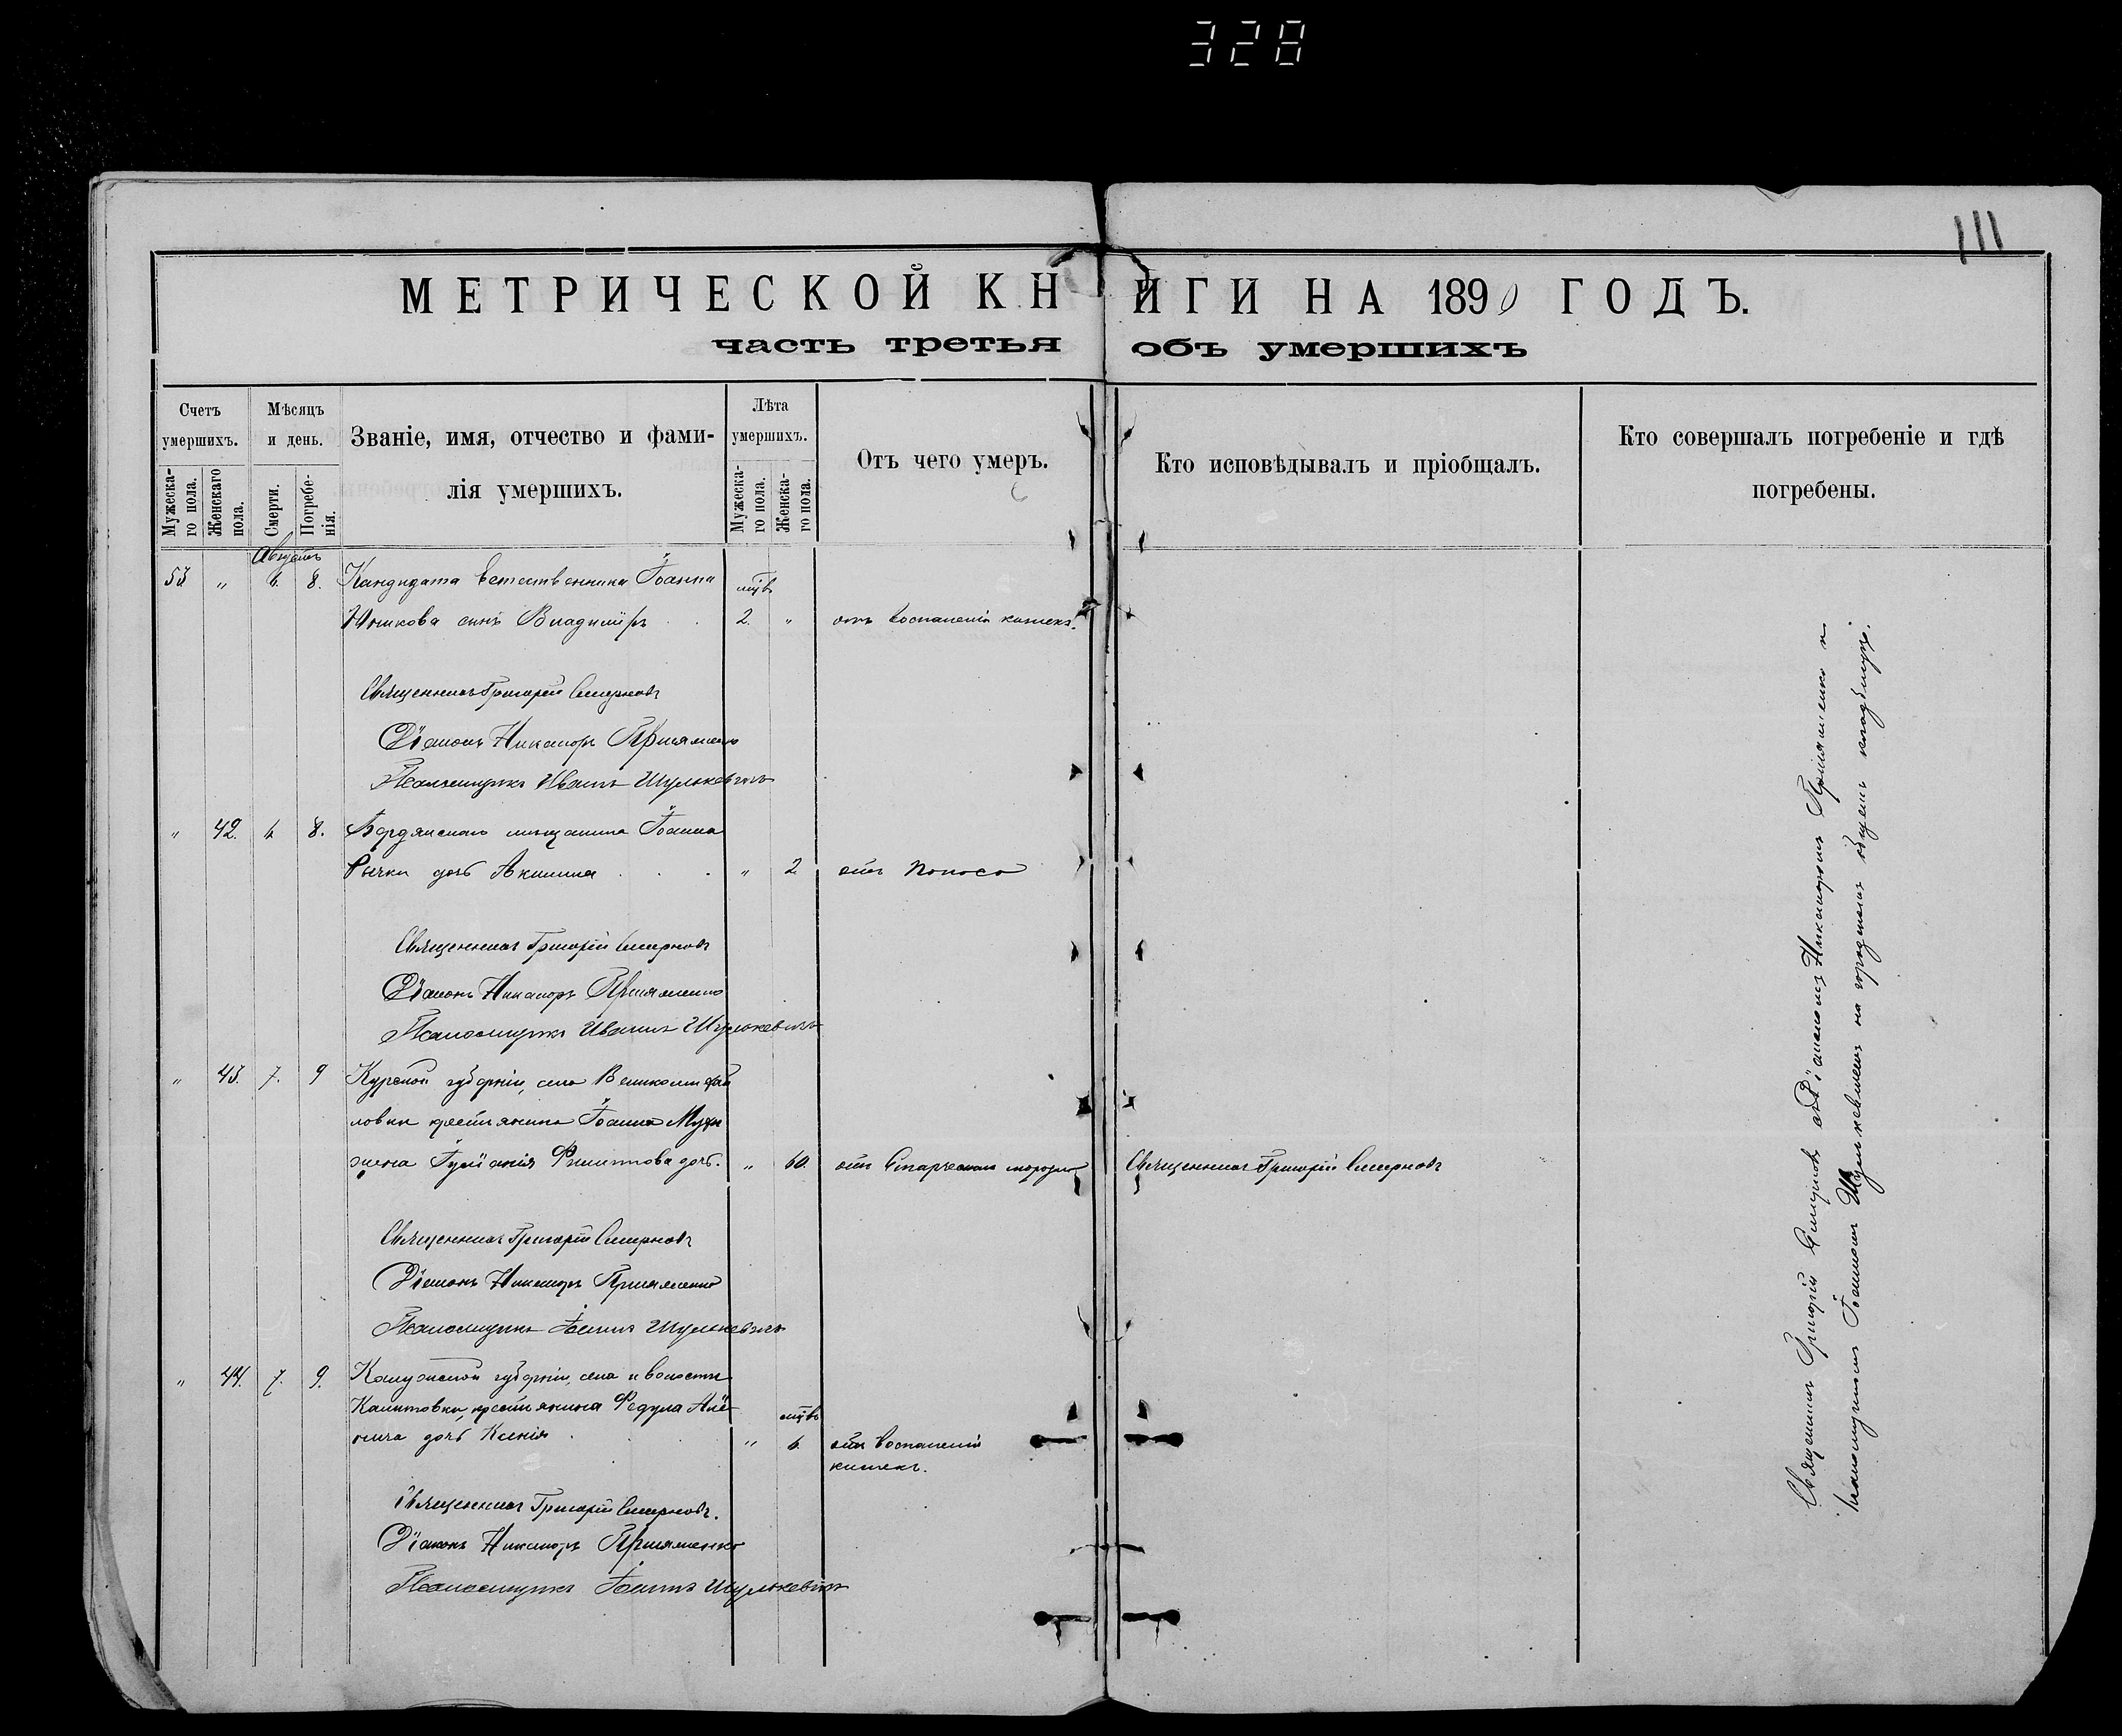 328
111
МЕТРИЧЕСКОЙ КНИГИ НА 1890 ГОДЪ.
часть третья объ умершихъ
Счетъ умершихъ.
Мужеска-го пола.
Женскаго пола.
Мѣсяцъ и день.
Смерти.
Погребе-нія.
Званіе, имя, отчество и фами-
лія умершихъ.
Лѣта умершихъ.
Мужеска-го пола.
Женска-го пола.
Отъ чего умеръ.
Кто исповѣдывалъ и пріобщалъ.
Кто совершалъ погребеніе и гдѣ
погребены.
Августъ
53 " 6. 8. Кандидата Естественника Іоанна мцв
сынъ Владиміръ 2. " отъ воспаленія кишекъ.
Священникъ Григорій Смирновъ
Діаконъ Никаноръ
Псаломщикъ Иванъ Шулькевичъ
" 42. 6. 8. Бердянскаго мѣщанина Іоанна
дочь Акилина " 2 отъ поноса
Священникъ Григорій Смирновъ
Діаконъ Никаноръ
Псаломщикъ Иванъ Шулькевичъ
" 43. 7. 9 Курской губерніи, села
крестьянина Іоанна
жена Іуліанія Филиппова дочь. " 60. отъ Старческаго Священникъ Григорій Смирновъ
Священникъ Григорій Смирновъ
Діаконъ Никаноръ
Псаломщикъ Іоаннъ Шулькевичъ
" 44. 7. 9. Калужской губерніи, села и волости
крестьянина Федула
дочь Ксенія мцв " 6. отъ воспаленія
кишекъ.
Священникъ Григорій Смирновъ.
Діаконъ Никаноръ
Псаломщикъ Іоаннъ Шулькевичъ
Священникъ Григорій Смирновъ съ Діакономъ Никаноромъ и
псаломщикомъ Іоанномъ Шулькевичемъ на городскомъ общемъ кладбищѣ.